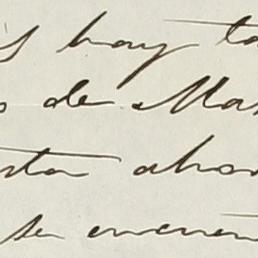 s hay ta
s de Mas
sta ahor
se encuen